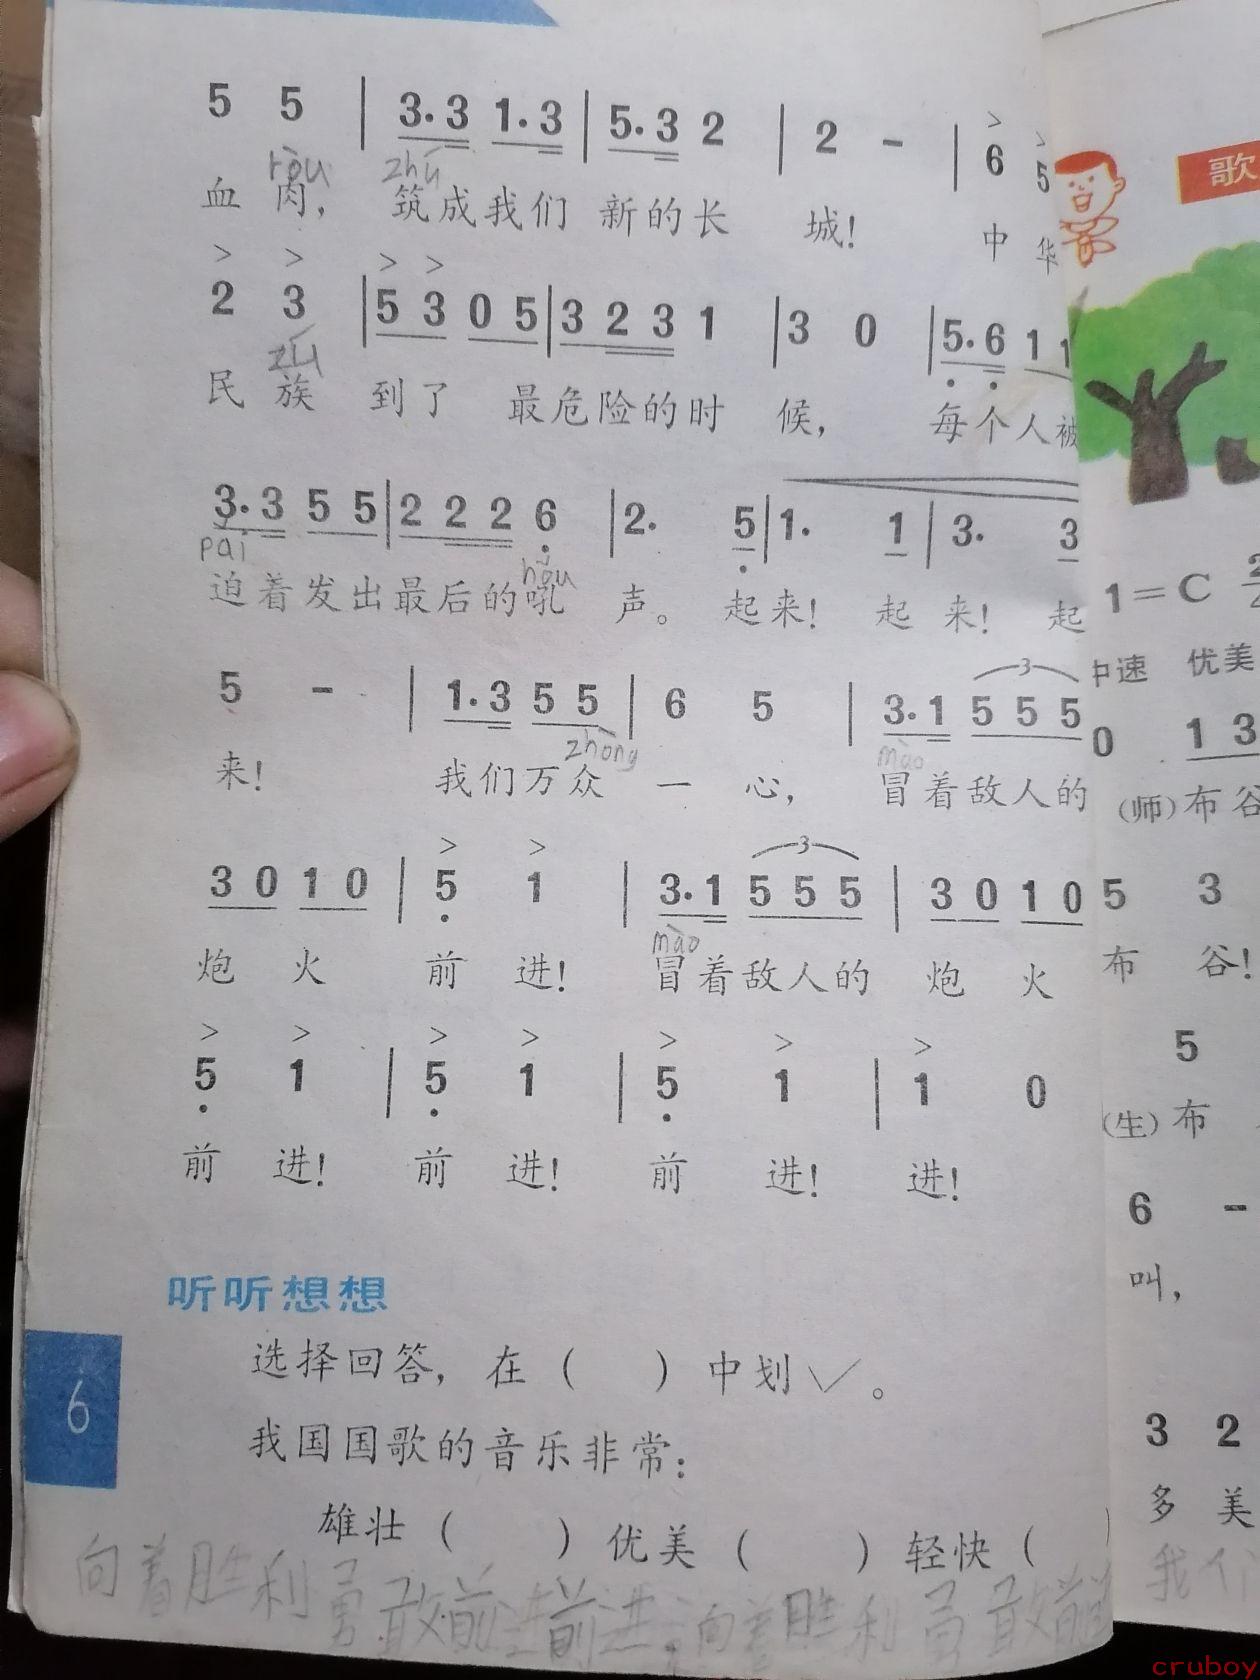 5 5 | 3.3 1.3 | 5.3 2 | 2 - | 6 5
ròu zhú
血 肉， 筑成我们 新的长 城！ 中 华
2 3 | 5 3 0 5 | 3 2 3 1 | 3 0 | 5.6 1 1
zú
民 族 到了 最危险的时 候， 每个人被
3.3 5 5 | 2 2 2 6 | 2. 5 | 1. 1 | 3. 3
pǎi hǒu
迫着发出最后的吼 声。 起来！ 起 来！ 起
5 - | 1.3 5 5 | 6 5 | 3.1 5 5 5
3
zhòng mào
来！ 我们万众 一 心， 冒着敌人的
3 0 1 0 | 5 1 | 3.1 5 5 5 | 3 0 1 0
3
mào
炮 火 前 进！ 冒着敌人的 炮 火
5 1 | 5 1 | 5 1 | 1 0
前 进！ 前 进！ 前 进！ 进！
听听想想
选择回答，在（ ）中划✓。
我国国歌的音乐非常：
雄壮（ ）优美（ ）轻快（
6
向着胜利勇敢前进前进向着胜利勇敢前
歌
1=C 2
中速 优美
0 1 3
（师）布谷
5 3
布 谷！
5
（生）布
6 -
叫，
3 2
多 美
我们
cruboy